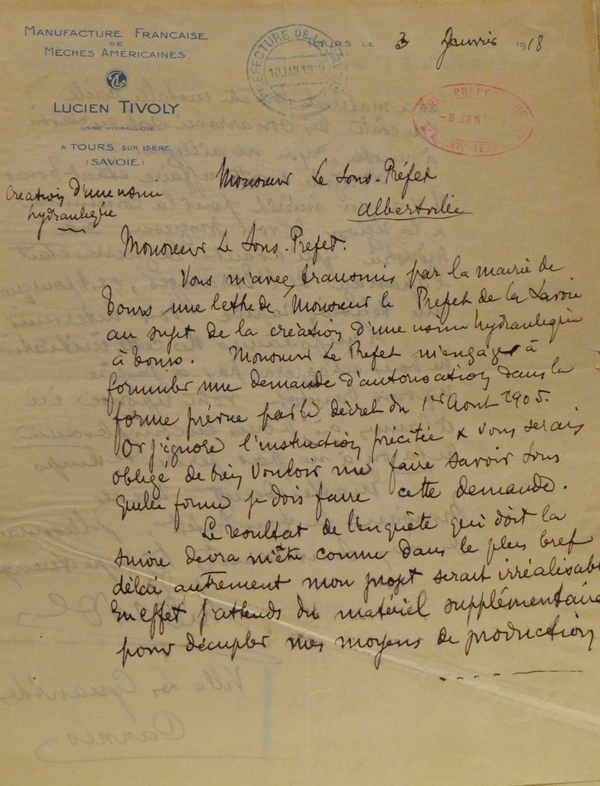 MANUFACTURE FRANÇAISE
DE
MÈCHES AMÉRICAINES
LUCIEN TIVOLY
USINE HYDRAULIQUE
A TOURS SUR ISÈRE
(SAVOIE)
TOURS, LE 3 Janvier 1918
PRÉFECTURE DE LA
10 JAN 19
PREFE
-8 JAN
Création d'une usine
hydraulique
Monsieur Le Sous-Préfet
Albertville
Monsieur Le Sous-Prefet.
Vous m'avez transmis par la mairie de
Tours une lettre de Monsieur le Prefet de la Savoie
au sujet de la création d'une usine hydraulique
à Tours. Monsieur Le Prefet m'engage à
formuler une demande d'autorisation dans la
forme prévue par le décret du 1er Aout 1905.
Or j'ignore l'instruction précitée & vous serais
obligé de bien vouloir me faire savoir sous
quelle forme je dois faire cette demande.
Le resultat de l'enquête qui doit la
suivre devra m'etre connue dans le plus bref
délai autrement mon projet serait irréalisable
En effet j'attends du matériel supplémentaire
pour décupler mes moyens de production
Cannes